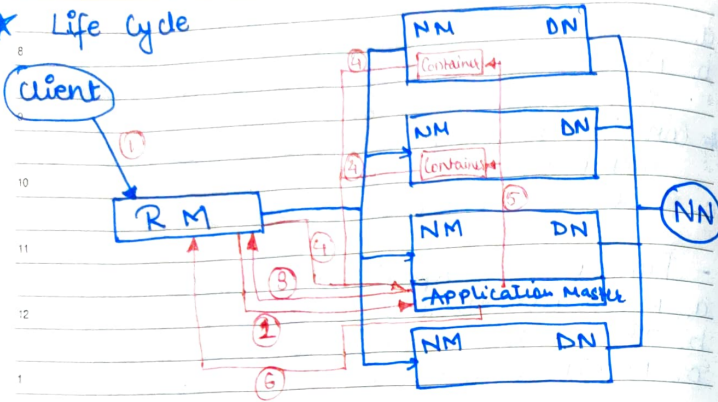 ★ Life Cycle
8
Client
9
①
10
R M
11
12
1
NM DN
Container
④
NM DN
Container
④
⑤
NM DN
Application Master
④
③
②
⑥
NM DN
NN